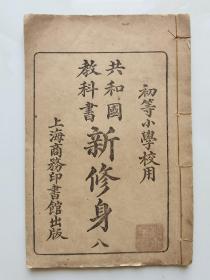 初等小學校用
共和國
教科書
新修身
八
上海商務印書館出版